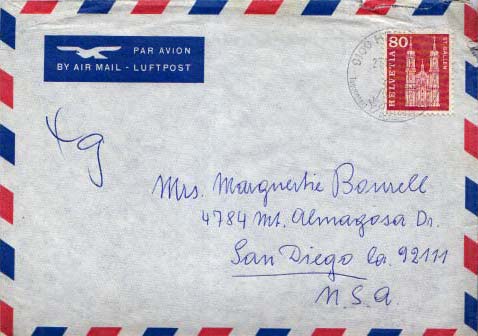 PAR AVION
BY AIR MAIL - LUFTPOST
80
ST. GALLEN
HELVETIA
Mrs. Marguertie Bonsell
4784 Mt. Almagosa Dr.
San Diego Ca. 92111
U.S.A.